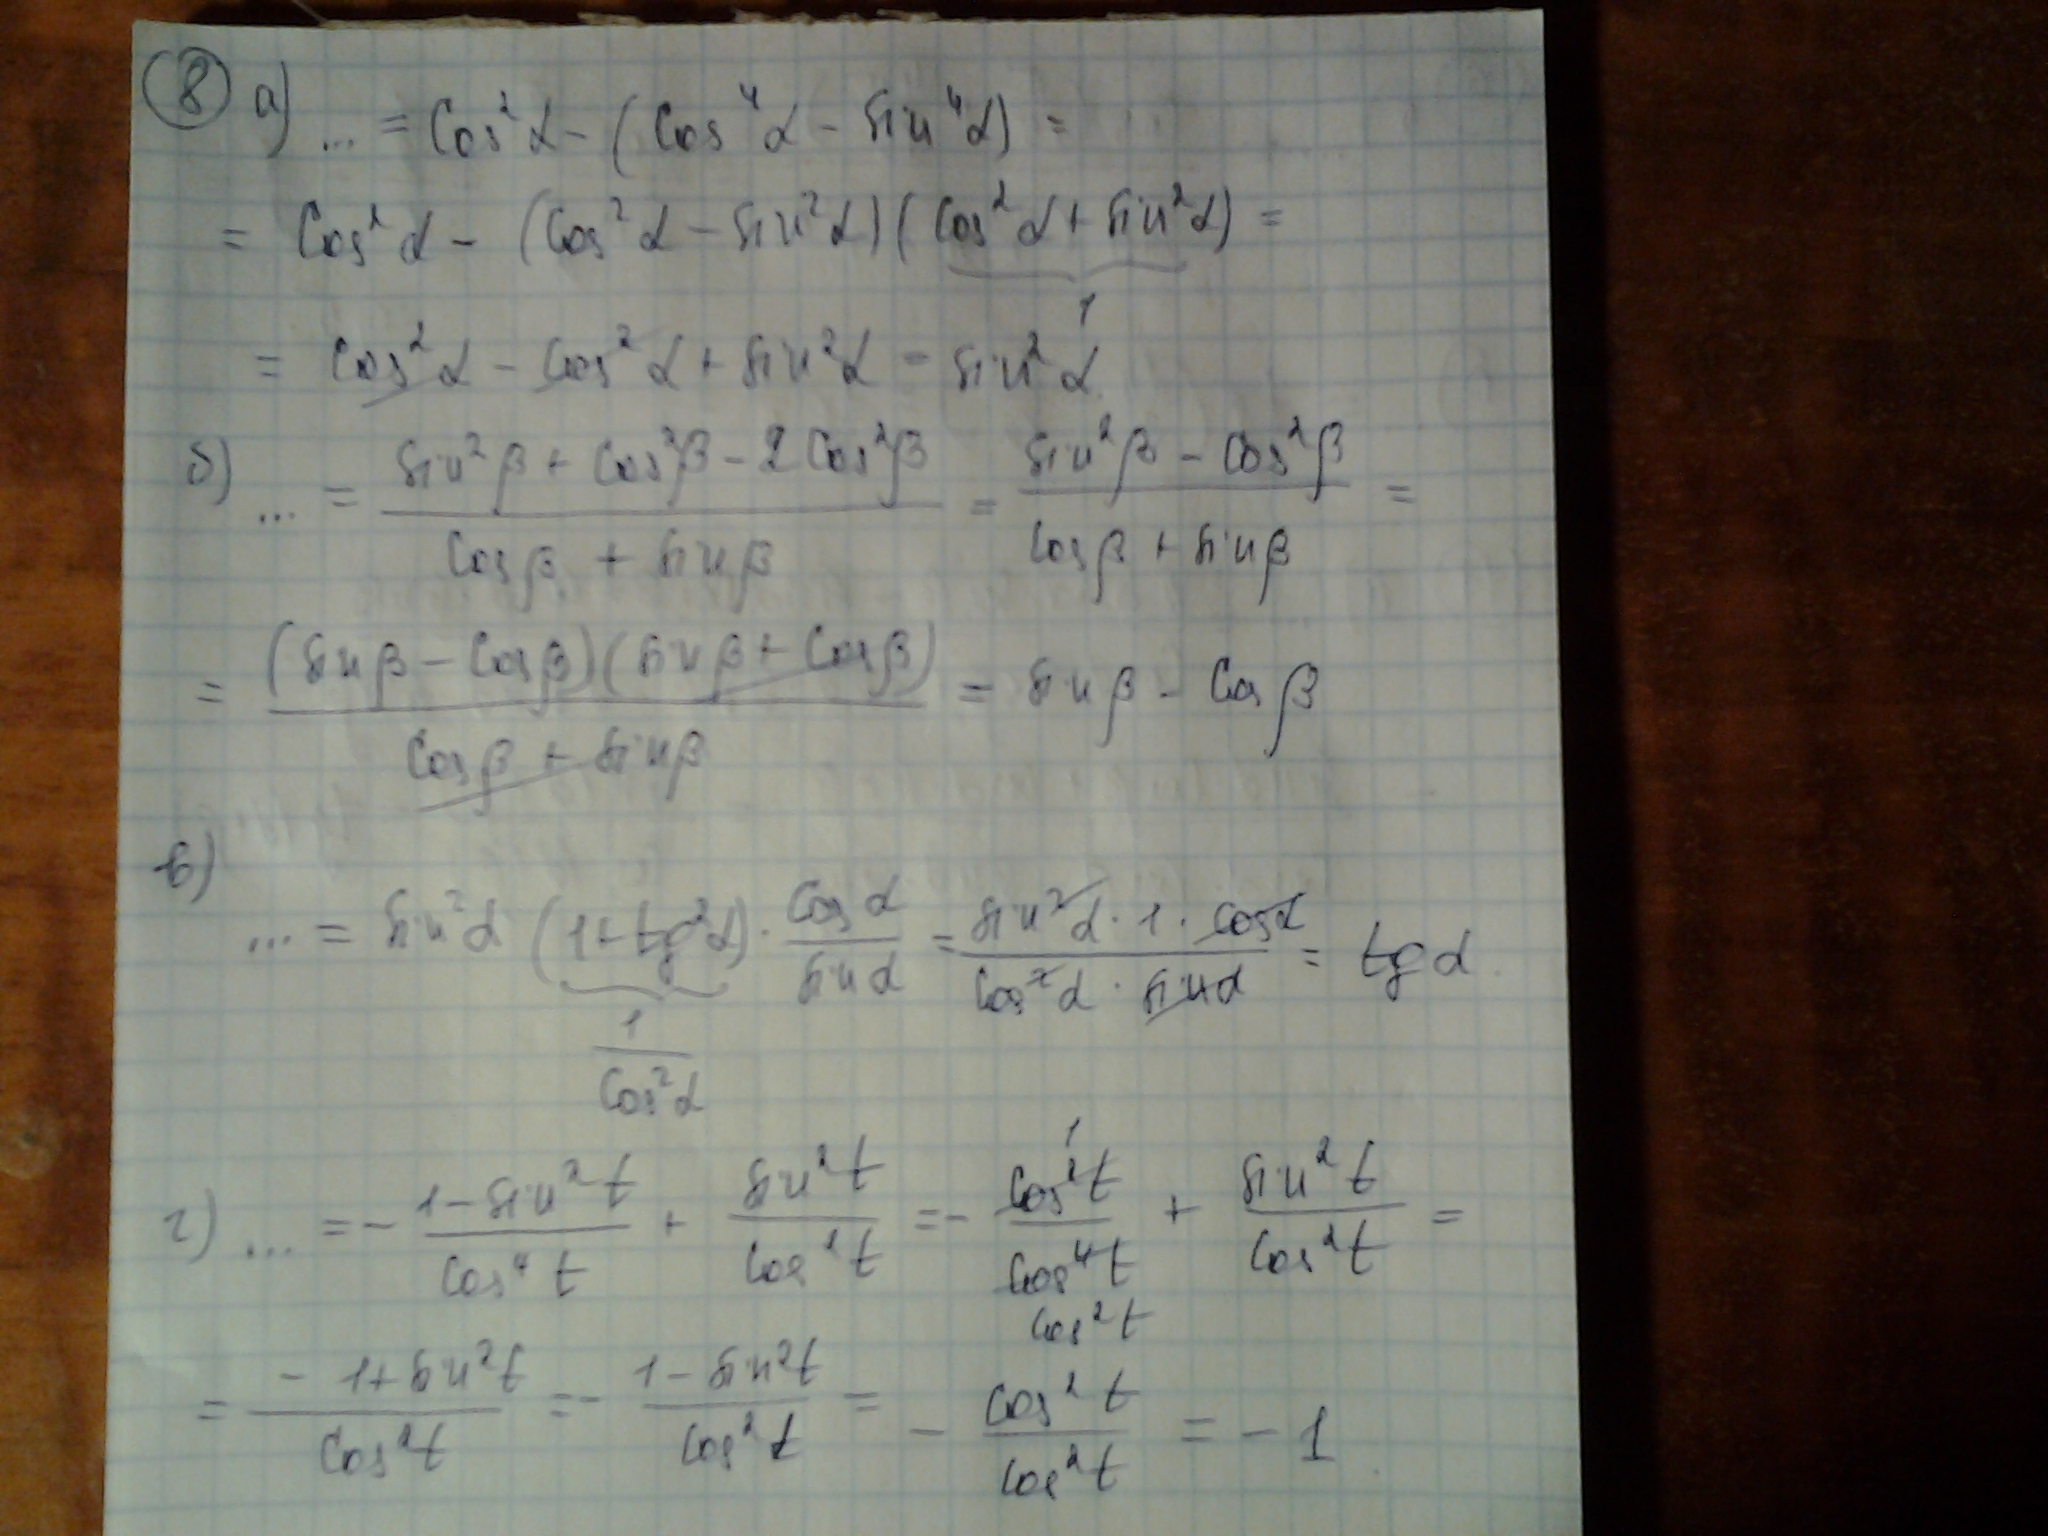 ⑧ а) ... = Cos²α − (Cos⁴α − Sin⁴α) =
= Cos²α − (Cos²α − Sin²α)(Cos²α + Sin²α) =
1
= Cos²α − Cos²α + Sin²α = Sin²α
б) ... = (Sin²β + Cos²β − 2Cos²β)/(Cosβ + Sinβ) = (Sin²β − Cos²β)/(Cosβ + Sinβ) =
= ((Sinβ − Cosβ)(Sinβ + Cosβ))/(Cosβ + Sinβ) = Sinβ − Cosβ
в)
... = Sin²α (1 + tg²α) · Cosα/Sinα = (Sin²α · 1 · Cosα)/(Cos²α · Sinα) = tgα
1/Cos²α
г) ... = − (1 − Sin²t)/(Cos⁴t) + Sin²t/Cos²t = − Cos²t/Cos⁴t + Sin²t/Cos²t =
1
Cos²t
= (−1 + Sin²t)/(Cos²t) = − (1 − Sin²t)/(Cos²t) = − Cos²t/Cos²t = −1